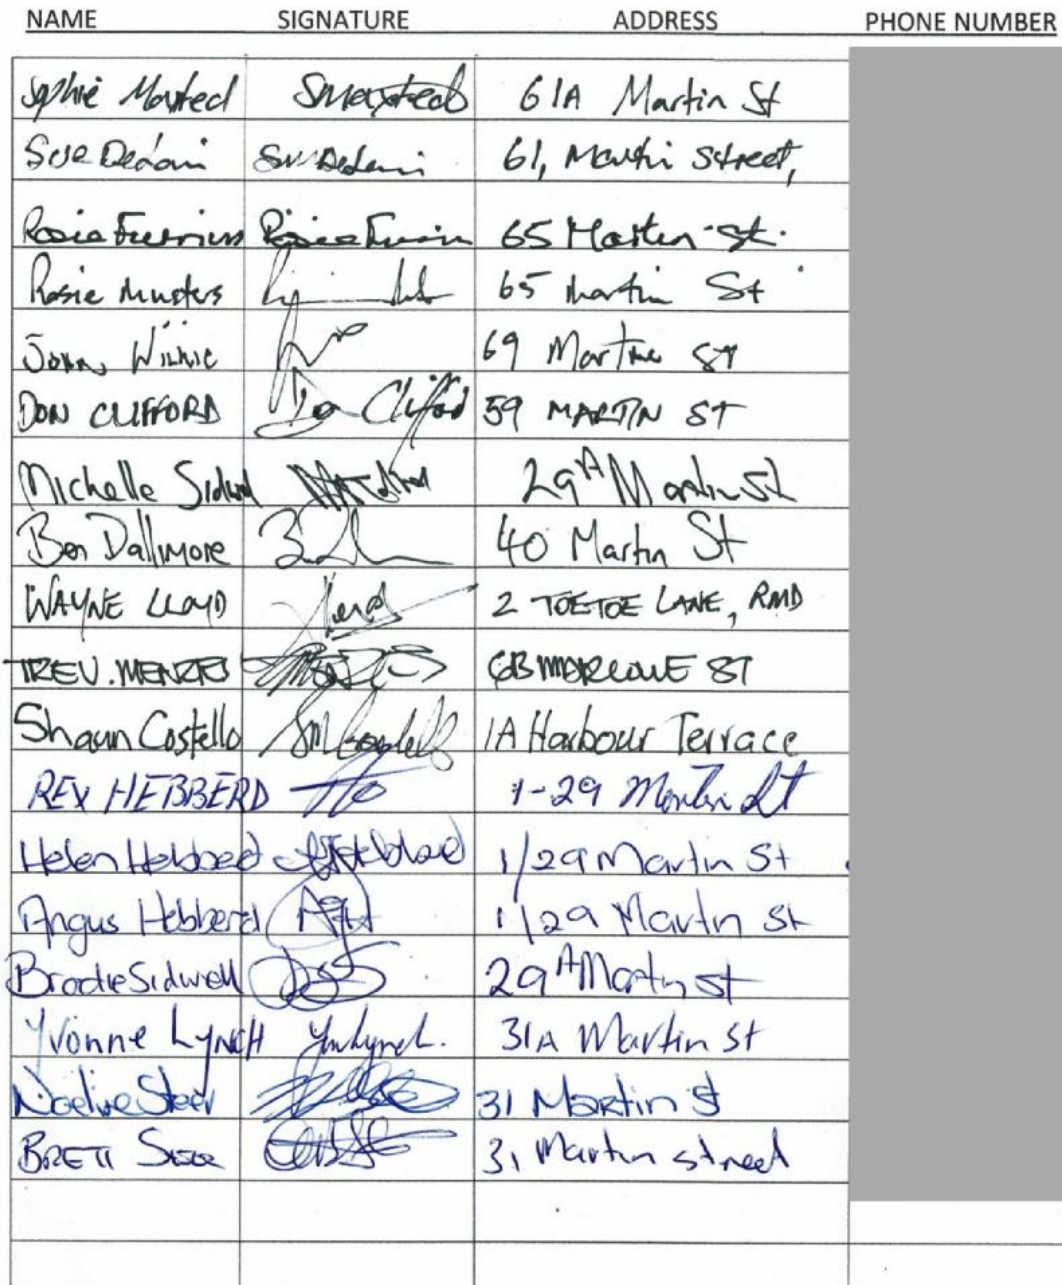 NAME SIGNATURE ADDRESS PHONE NUMBER
Sophie Maxted Smaxted 61A Martin St
Sue Dedani 61, Martin Street,
Rosie 65 Martin St.
Rosie Musters 65 Martin St
John Wilkie 69 Martin ST
DON CLIFFORD Don Clifford 59 MARTIN ST
Michelle Sidwell 29A Martin St
Ben Dallimore 40 Martin St
WAYNE LLOYD 2 TOETOE LANE, RMD
TREV. MENZIES ST
Shaun Costello 1A Harbour Terrace
REX HEBBERD 1-29 Martin St
Helen Hebberd 1/29 Martin St
Angus Hebberd 1/29 Martin St
Brodie Sidwell 29A Martin St
Yvonne LYNCH 31A Martin St
Noeline Steer 31 Martin St
BRETT 31 Martin street